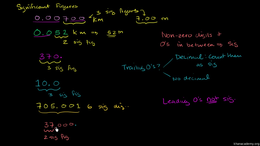 Significant Figures
0.00700 km
3 sig figures
7.00 m
0.052 km → 52 m
2 sig fig
370.
3 sig figs
10.0
3 sig fig
705.001 6 sig figs
37,000.
2 sig fig
Non-zero digits +
0's in between → sig
Trailing 0's?
Decimal: count them
as sig
no decimal
Leading 0's not sig